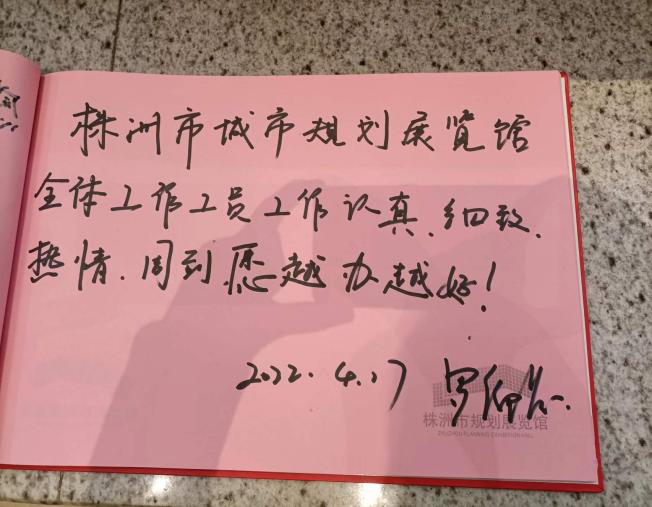 株洲市城市规划展览馆
全体工作工员工作认真、细致、
热情、周到.愿越办越好!
2022.4.17
株洲市规划展览馆
ZHUZHOU PLANNING EXHIBITION HALL